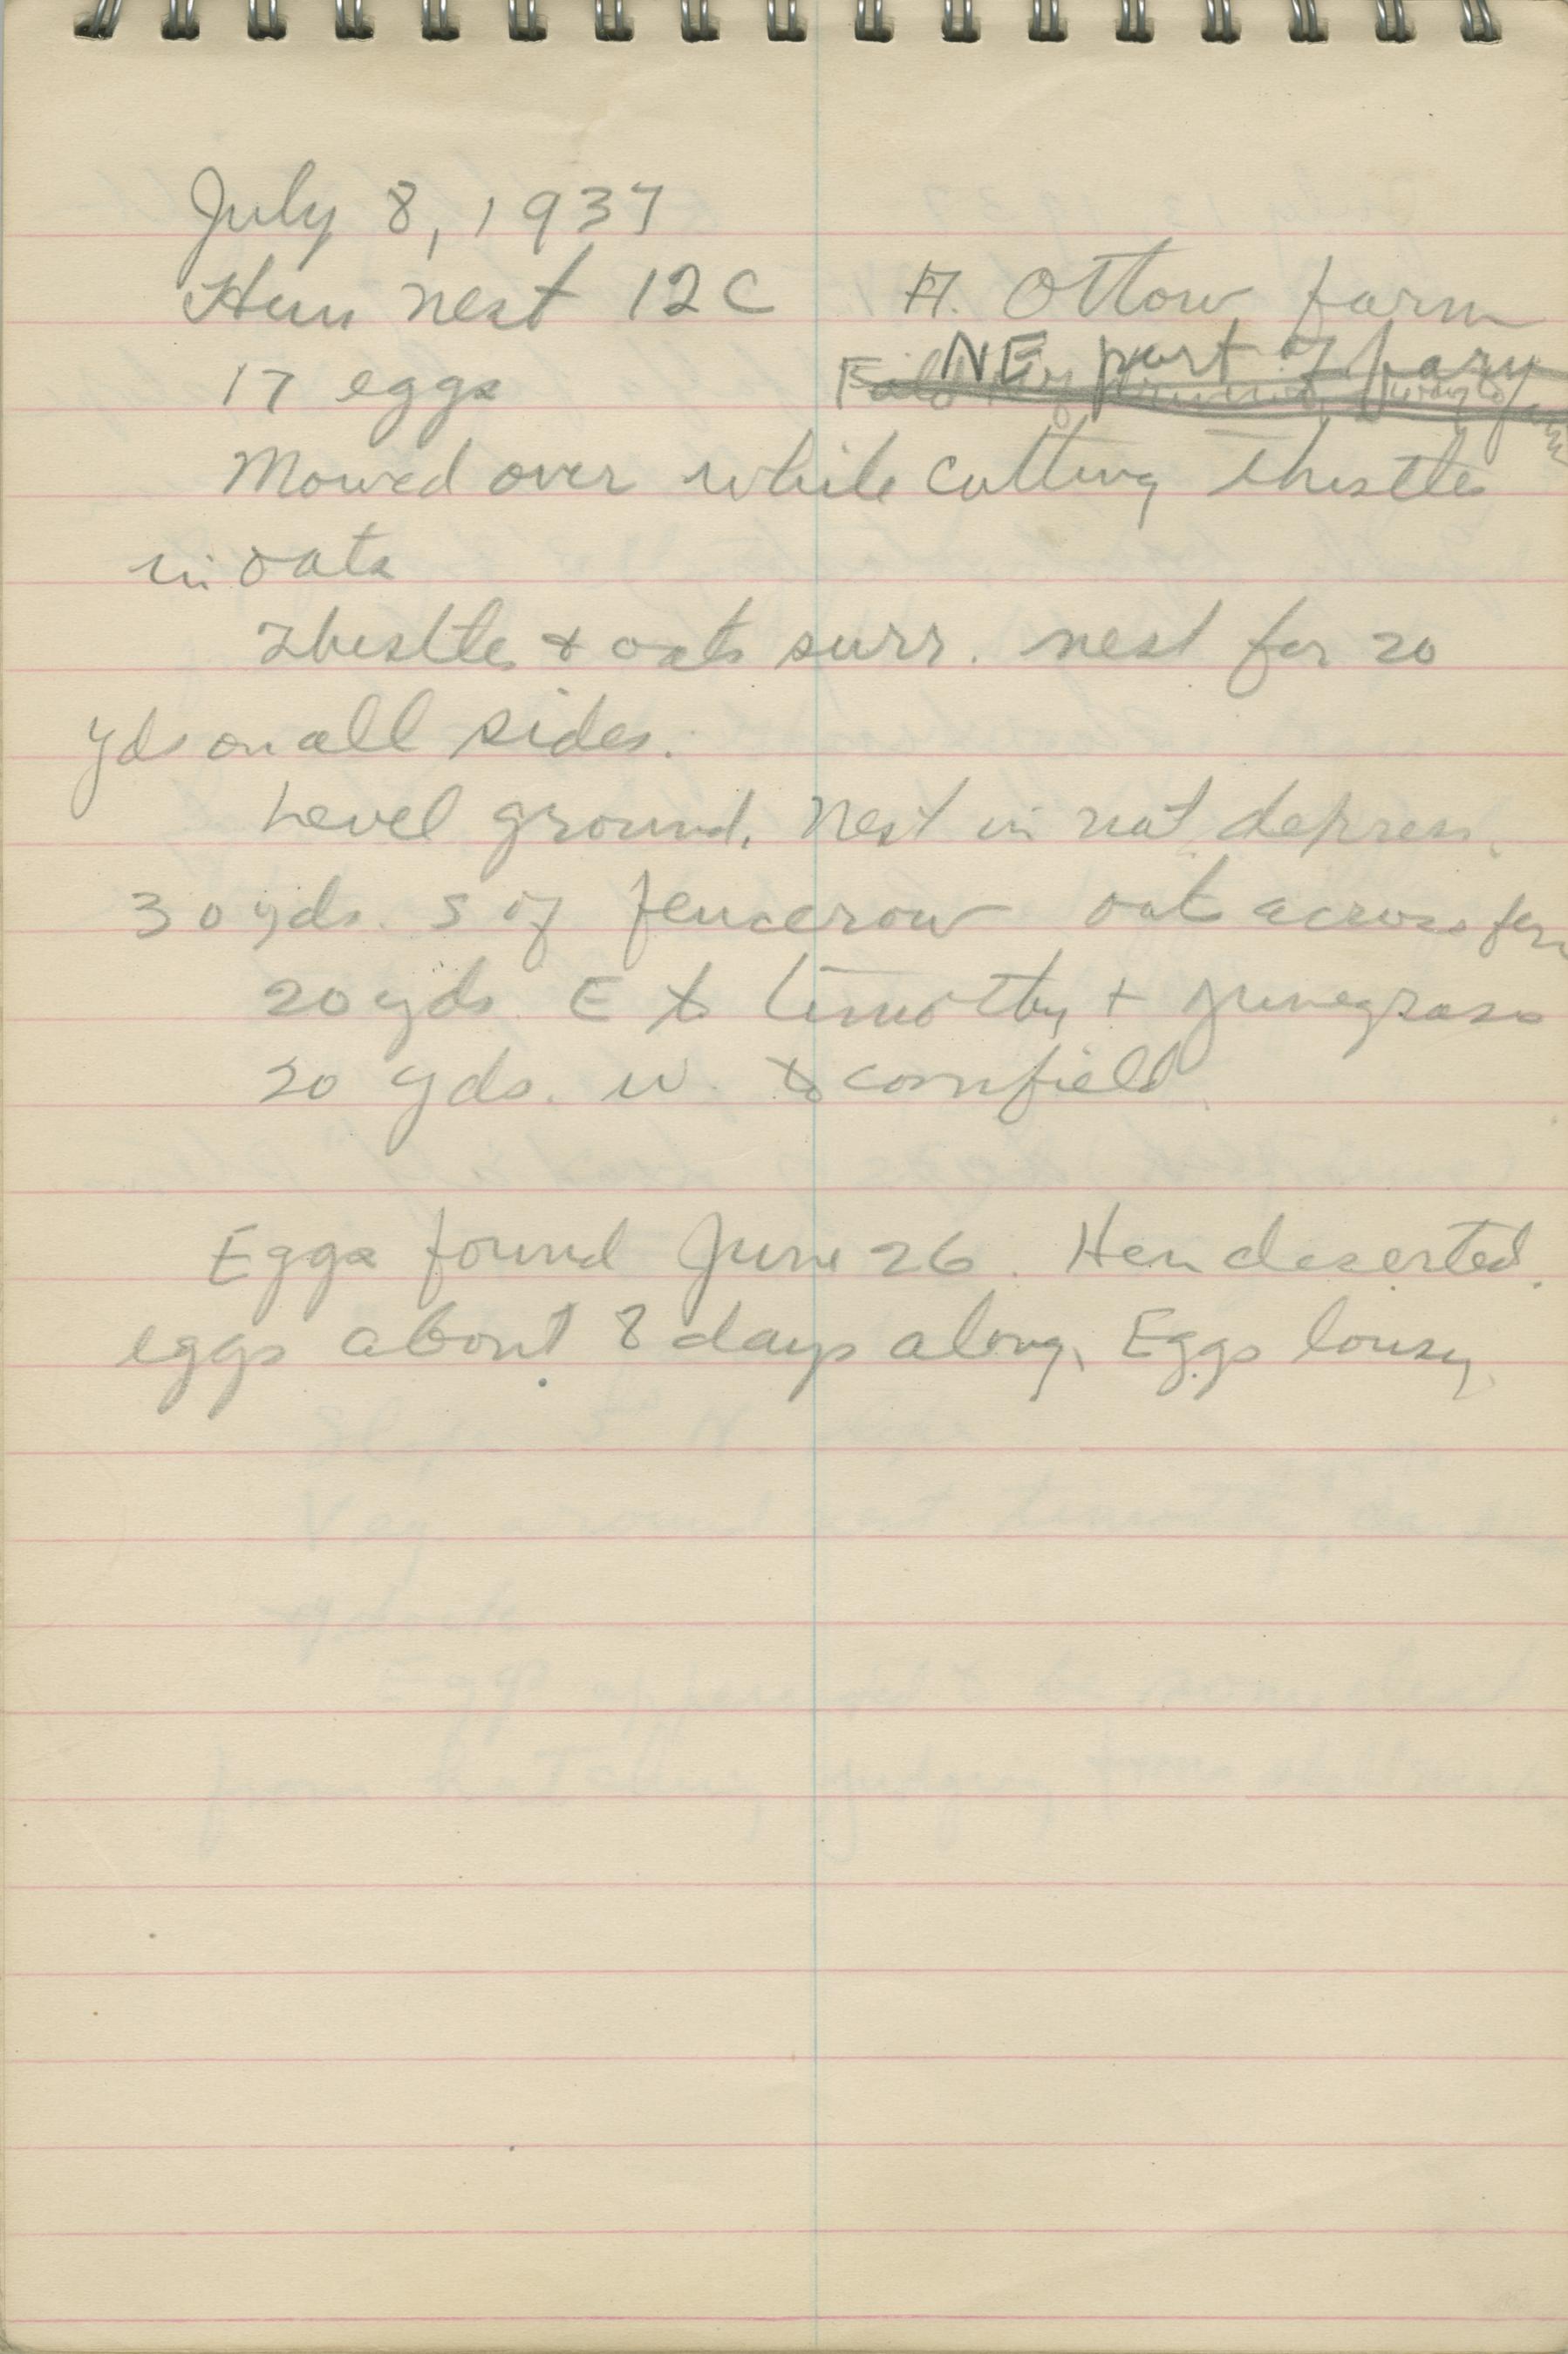 July 8, 1937
Hun nest 12C H. Ottow farm
17 eggs NE part of farm
Mowed over while cutting thistles
in oats
Thistles & oats surr. nest for 20
yds on all sides.
Level ground. Nest in nat. depress.
30 yds. S of fencerow oats across fen
20 yds. E to timothy + Junegrass
20 yds. W. to cornfield
Eggs found June 26. Hen deserted.
eggs about 8 days along. Eggs lousy.